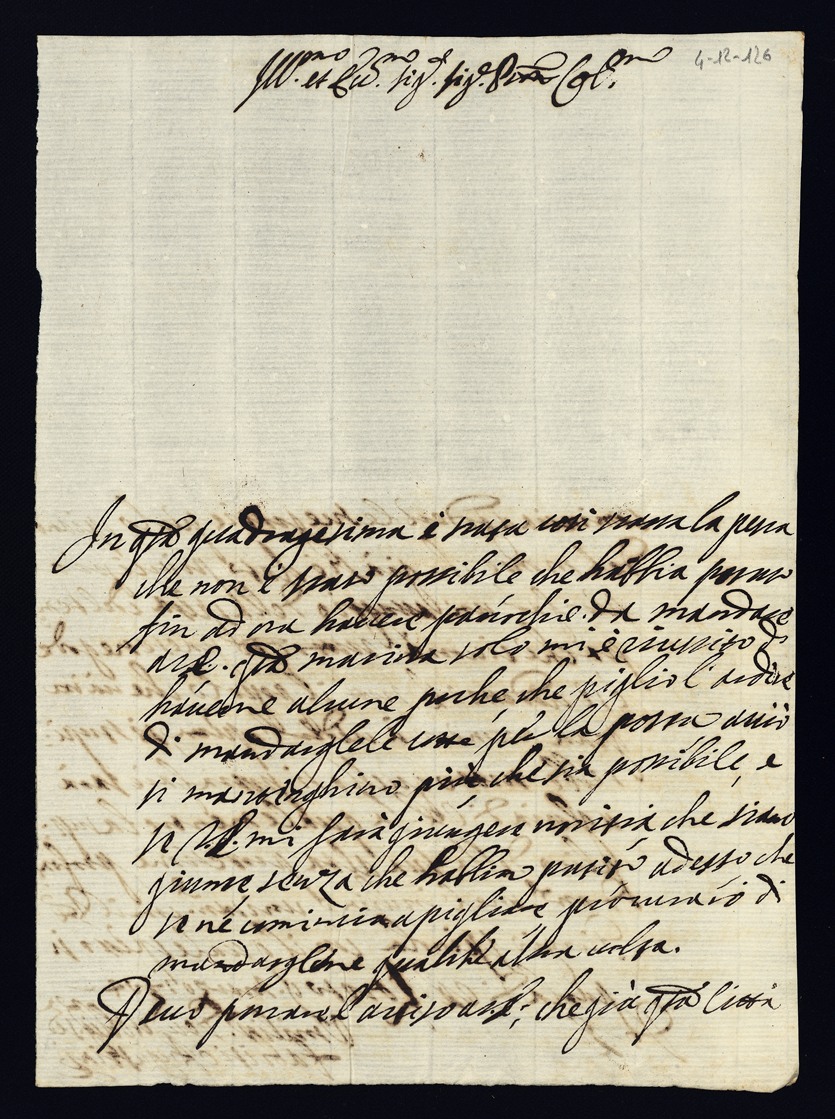 4-12-126
Ill.mo et Ecc.mo Sig.r Sig.r Pron Col.mo
In q.ta quadragesima è stata così scarsa la pesca
che non è stato possibile che habbia potuto
fin ad ora havere panocchie da mandare
a V.E. q.ta mattina solo mi è riussito di
haverne alcune poche, che piglio l'ardire
di mandarglele cotte per la posta acciò
si mantenghino più che sia possibile, e
se V.E. mi farà giungere notitia che siano
giunte senza che habbin patito adesso che
se ne comincia a pigliare procurarò di
mandarglene qualch'altra volta.
Devo portare l'aviso a V.E.; che già q.ta Città